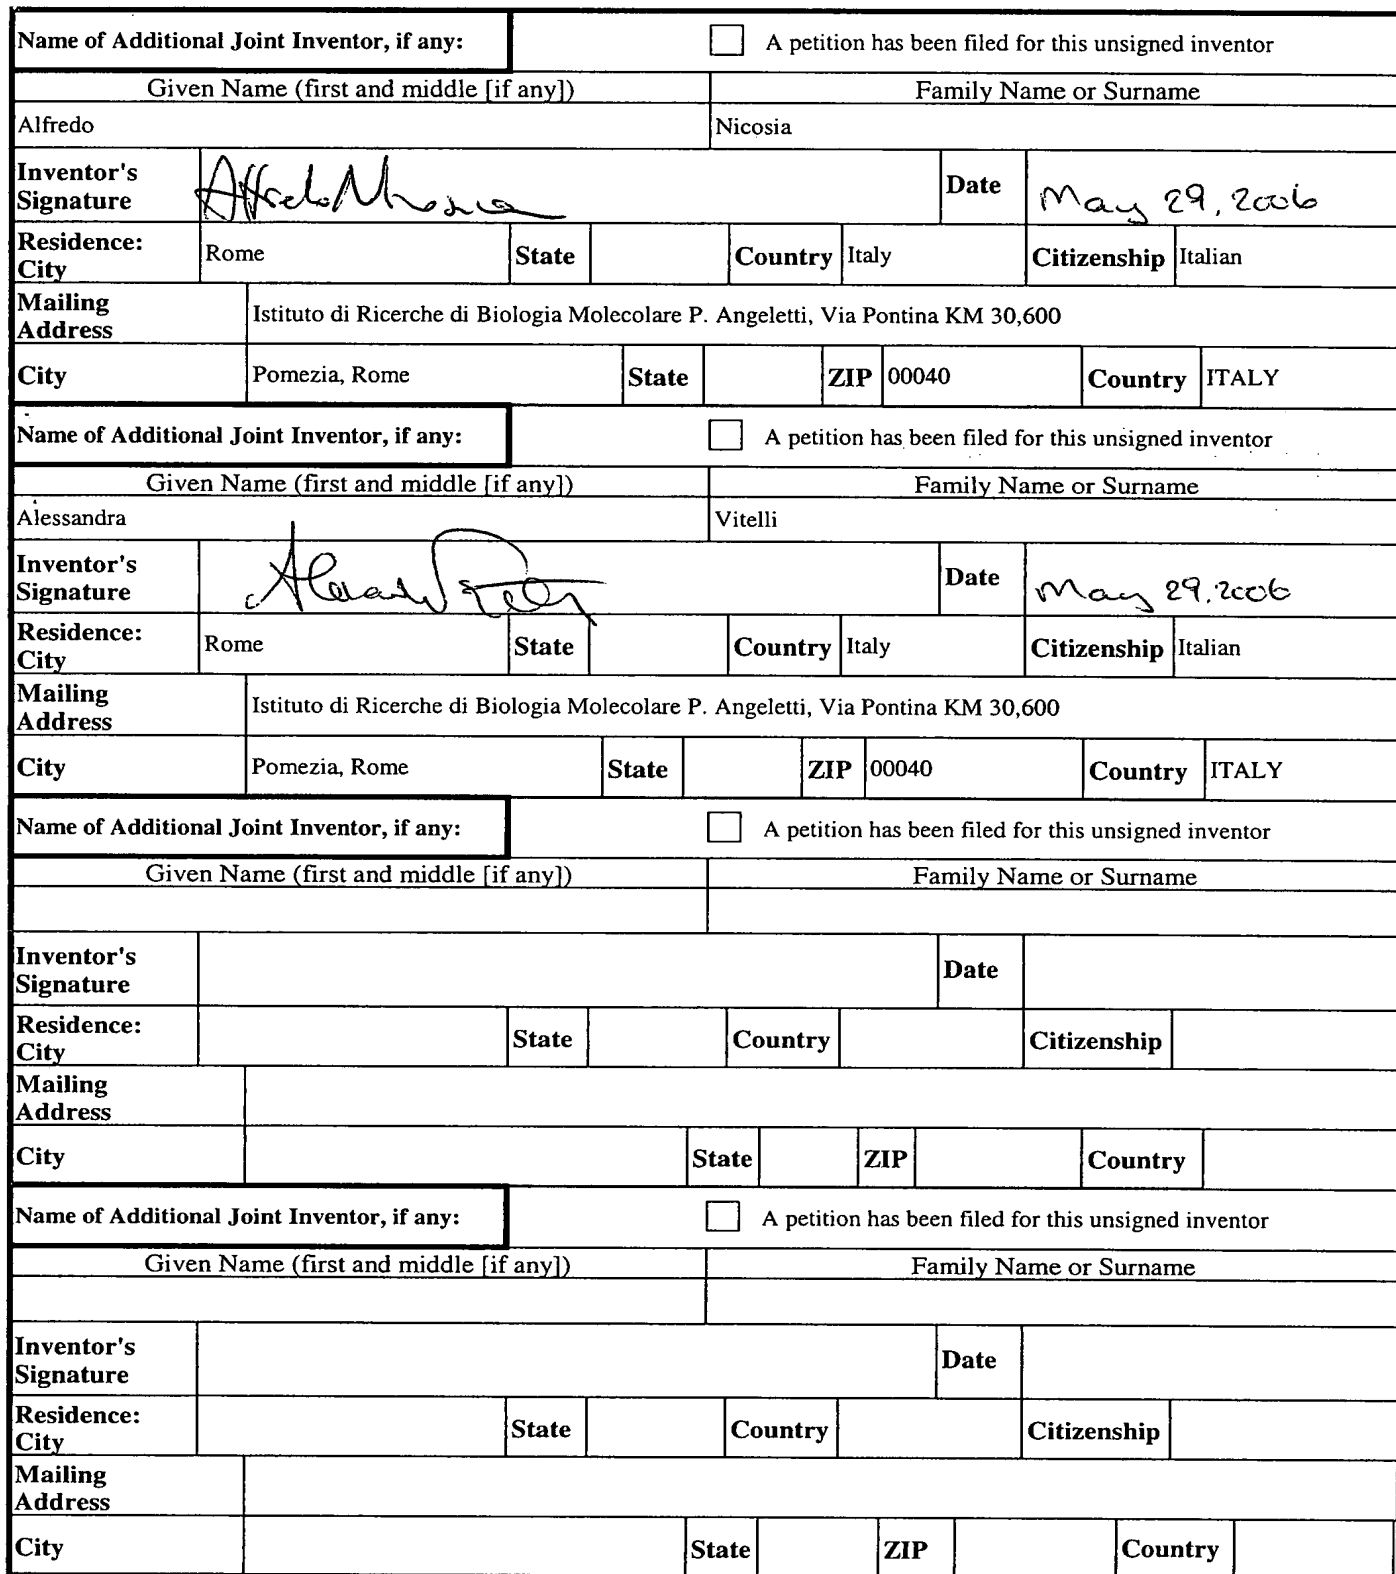 Name of Additional Joint Inventor, if any: A petition has been filed for this unsigned inventor
Given Name (first and middle [if any]) Family Name or Surname
Alfredo Nicosia
Inventor's Signature Alfredo Nicosia Date May 29, 2006
Residence: City Rome State Country Italy Citizenship Italian
Mailing Address Istituto di Ricerche di Biologia Molecolare P. Angeletti, Via Pontina KM 30,600
City Pomezia, Rome State ZIP 00040 Country ITALY
Name of Additional Joint Inventor, if any: A petition has been filed for this unsigned inventor
Given Name (first and middle [if any]) Family Name or Surname
Alessandra Vitelli
Inventor's Signature Date May 29, 2006
Residence: City Rome State Country Italy Citizenship Italian
Mailing Address Istituto di Ricerche di Biologia Molecolare P. Angeletti, Via Pontina KM 30,600
City Pomezia, Rome State ZIP 00040 Country ITALY
Name of Additional Joint Inventor, if any: A petition has been filed for this unsigned inventor
Given Name (first and middle [if any]) Family Name or Surname
Inventor's Signature Date
Residence: City State Country Citizenship
Mailing Address
City State ZIP Country
Name of Additional Joint Inventor, if any: A petition has been filed for this unsigned inventor
Given Name (first and middle [if any]) Family Name or Surname
Inventor's Signature Date
Residence: City State Country Citizenship
Mailing Address
City State ZIP Country